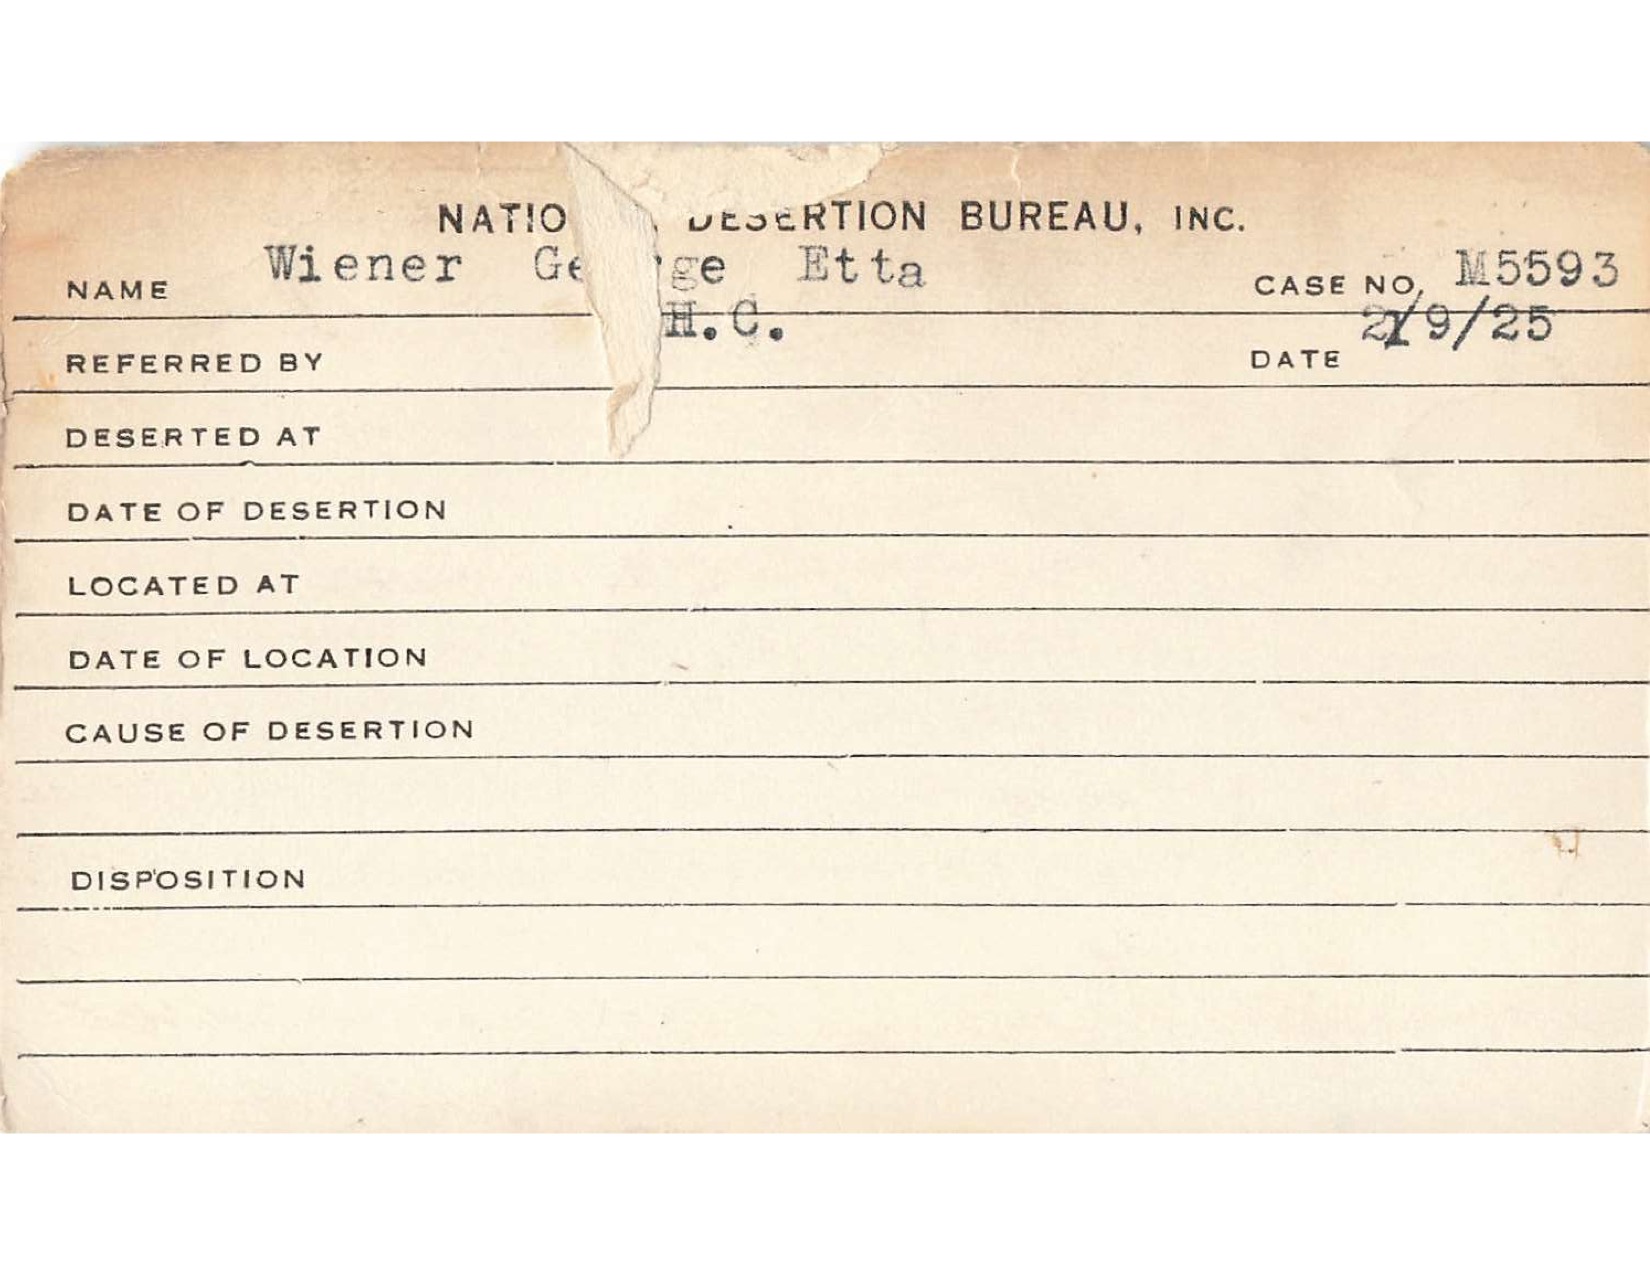 NATIO DESERTION BUREAU, INC.
NAME Wiener Ge rge Etta CASE NO. M5593
REFERRED BY H.C. DATE 2/9/25
DESERTED AT
DATE OF DESERTION
LOCATED AT
DATE OF LOCATION
CAUSE OF DESERTION
DISPOSITION